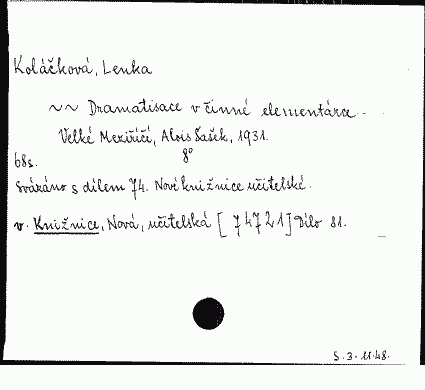 Koláčková, Lenka
~~ Dramatisace v činné elementárce.
Velké Meziříčí, Alois Šašek, 1931.
68s. 8°
Svázáno s dílem 74. Nové knižnice učitelské.
v. Knižnice, Nová, učitelská [74721] Dílo 81.
S. 3-11.48.